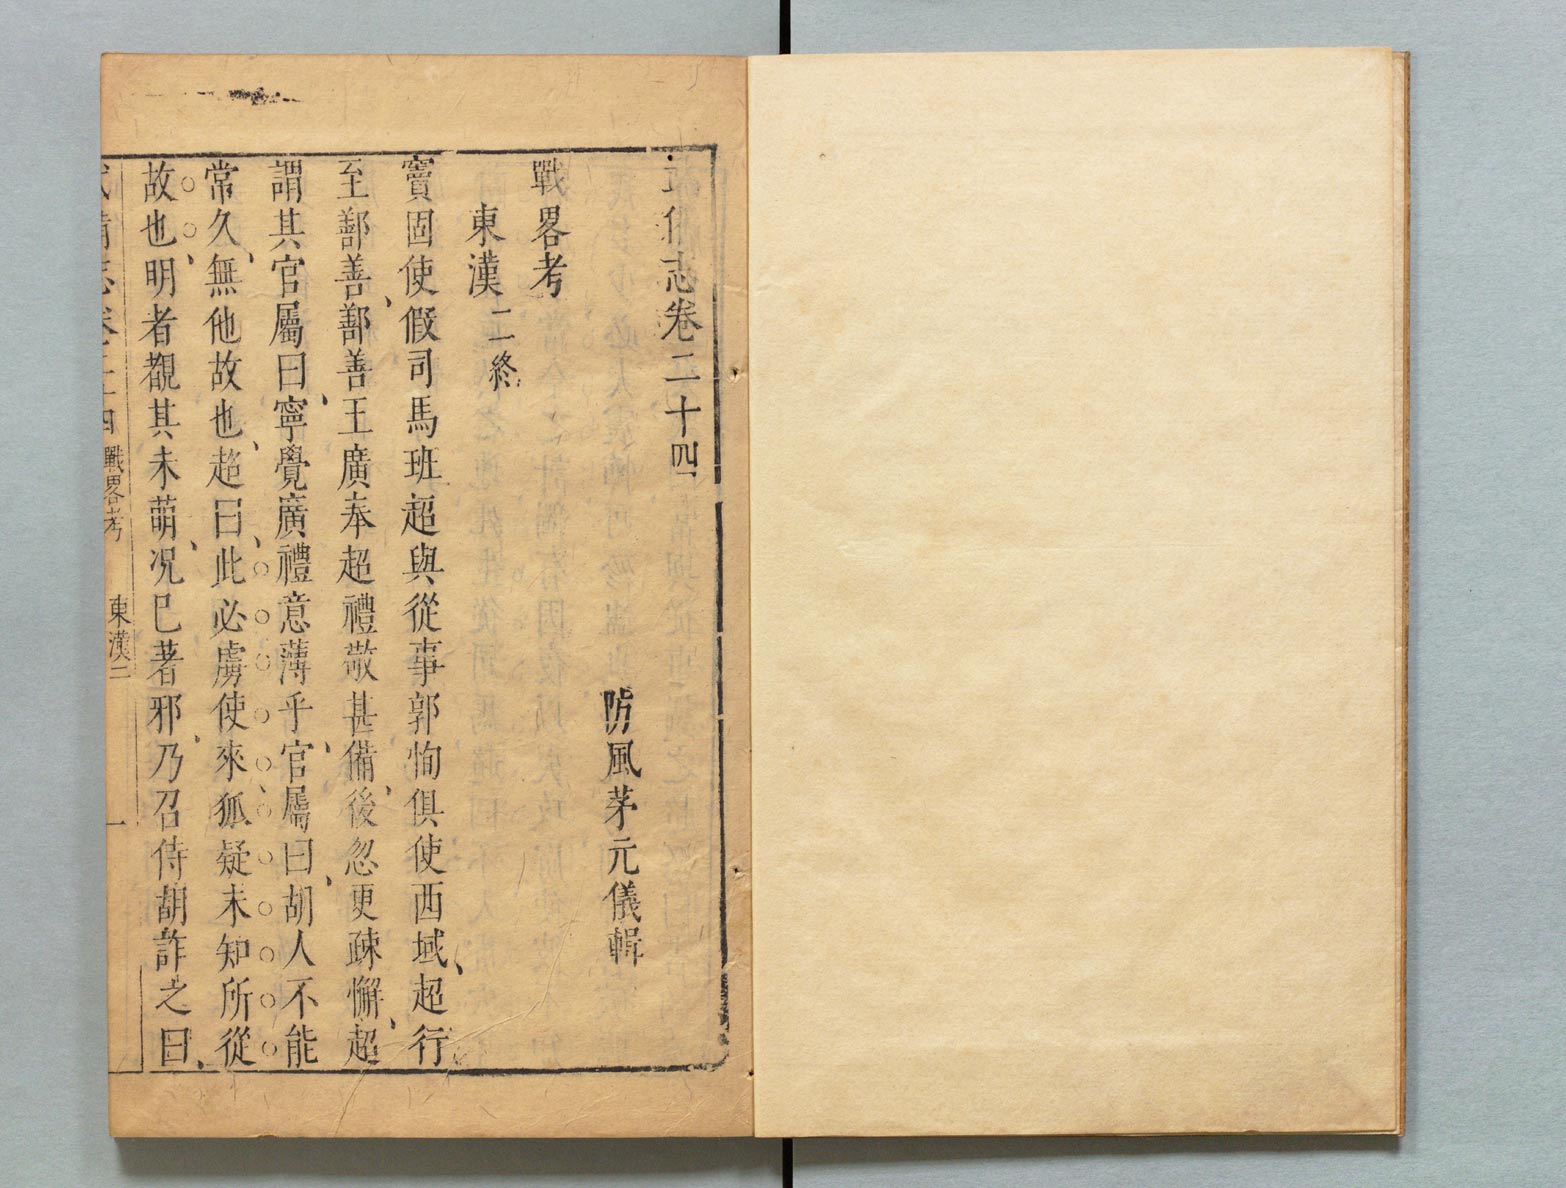 武備志卷二十四
防風茅元儀輯
戰畧考
東漢二終
竇固使假司馬班超與從事郭恂俱使西域、超行
至鄯善、鄯善王廣奉超禮敬甚備、後忽更疎懈、超
謂其官屬曰、寧覺廣禮意薄乎、官屬曰、胡人不能
常久、無他故也、超曰、此必虜使來、狐疑未知所從
故也、明者覩其未萌、况已著邪、乃召侍胡詐之曰、
武備志卷二十四 戰畧考 東漢二 一